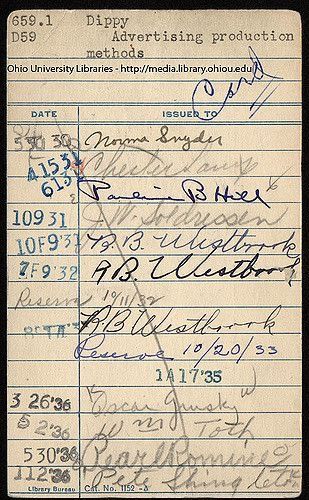 659.1 Dippy
D59 Advertising production
methods
Ohio University Libraries - http://media.library.ohiou.edu/
Card
DATE ISSUED TO
530 30 Norma Snyder
4 15 31 Chester
613 Pauline B Hill
109 31 J.W.
10F9'3 B. B. Westbrook
7F9'32 RB Westbrook
Reserve 10/11/32
RB Westbrook
Reserve 10/20/33
1A17'35
3 26'36 Oscar
5 2'36 W M Toth
530'36 Pearl Romine
112'36 Pete Shingleton
Library Bureau Cat. No. 1152-3